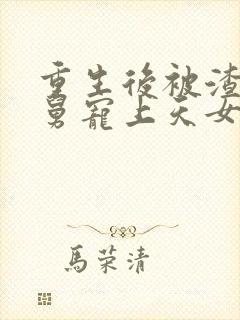 重生後被渣
舅寵上天女
馬荣清